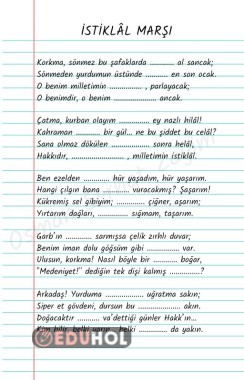 İSTİKLÂL MARŞI
Korkma, sönmez bu şafaklarda ........... al sancak;
Sönmeden yurdumun üstünde ........... en son ocak.
O benim milletimin ............... , parlayacak;
O benimdir, o benim ............... ancak.
Çatma, kurban olayım ........... ey nazlı hilâl!
Kahraman ........... bir gül... ne bu şiddet bu celâl?
Sana olmaz dökülen ............. sonra helâl,
Hakkıdır, ................. , milletimin istiklâl.
Ben ezelden ........... hür yaşadım, hür yaşarım.
Hangi çılgın bana ......... vuracakmış? Şaşarım!
Kükremiş sel gibiyim; ............ çiğner, aşarım;
Yırtarım dağları, ............. sığmam, taşarım.
Garb'ın ........... sarmışsa çelik zırhlı duvar;
Benim iman dolu göğsüm gibi .............. var.
Ulusun, korkma! Nasıl böyle bir ........... boğar,
"Medeniyet!" dediğin tek dişi kalmış ...........?
Arkadaş! Yurduma ............. uğratma sakın;
Siper et gövdeni, dursun bu ............... akın.
Doğacaktır ......... va'dettiği günler Hakk'ın...
Kim bilir, belki yarın, belki ........... da yakın.
EDUHOL